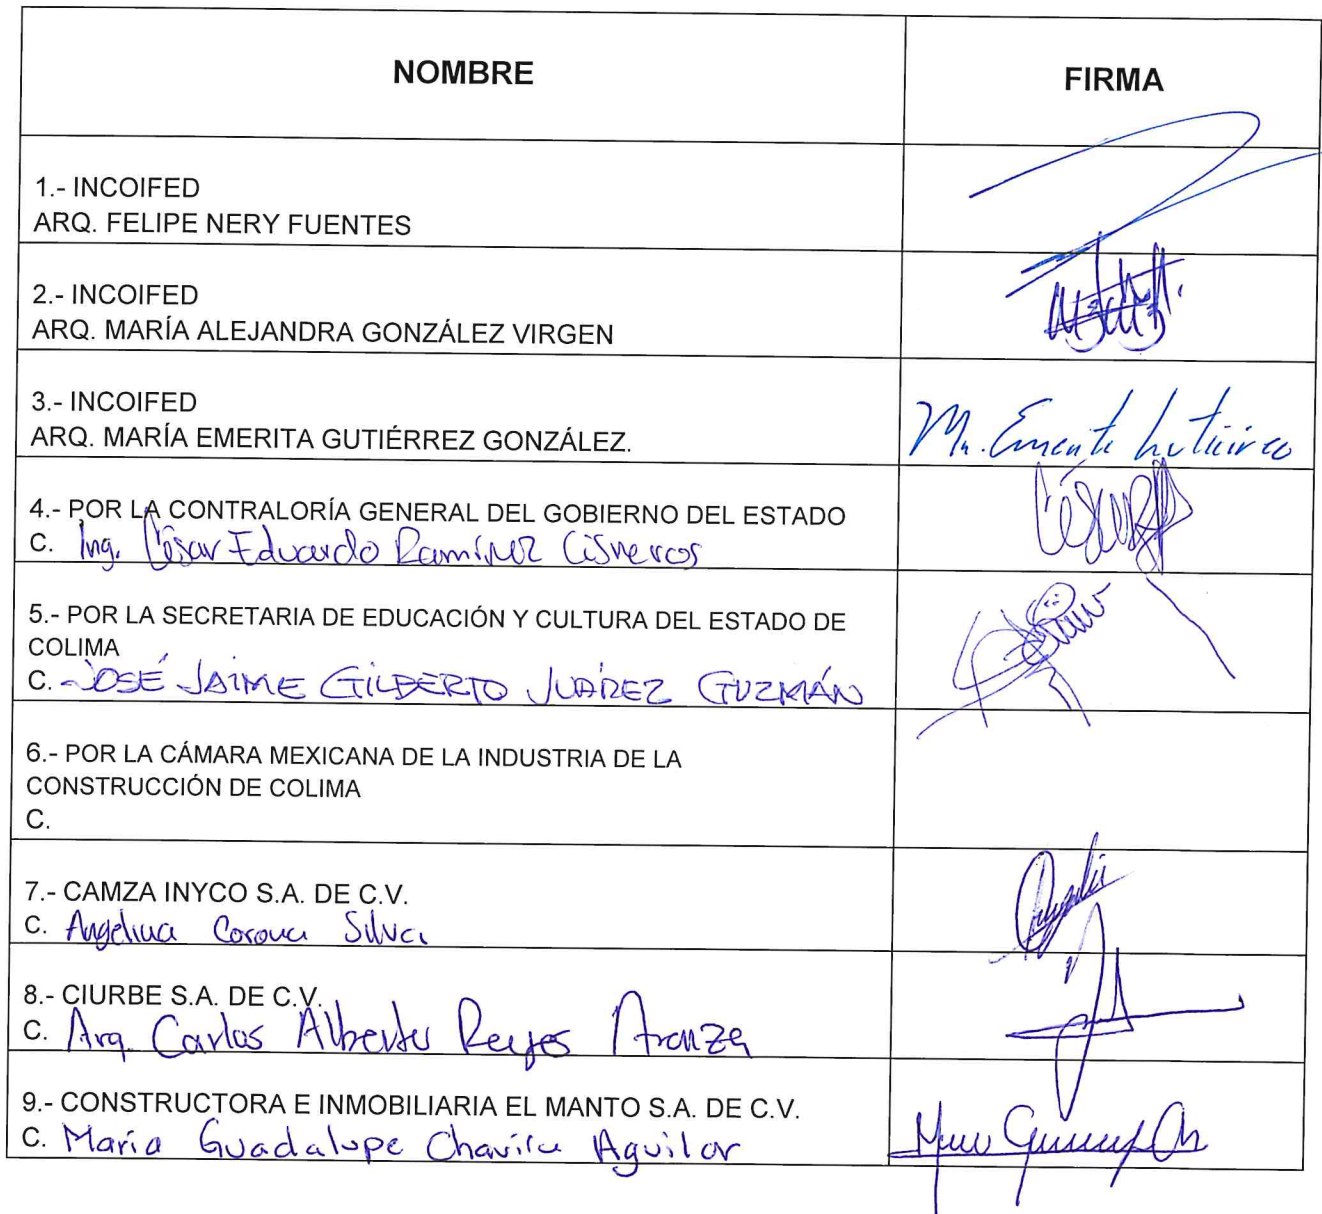 NOMBRE
FIRMA
1.- INCOIFED
ARQ. FELIPE NERY FUENTES
2.- INCOIFED
ARQ. MARÍA ALEJANDRA GONZÁLEZ VIRGEN
3.- INCOIFED
ARQ. MARÍA EMERITA GUTIÉRREZ GONZÁLEZ.
4.- POR LA CONTRALORÍA GENERAL DEL GOBIERNO DEL ESTADO
C. Ing. César Eduardo Ramírez Cisneros
5.- POR LA SECRETARIA DE EDUCACIÓN Y CULTURA DEL ESTADO DE
COLIMA
C. JOSÉ JAIME GILBERTO JUÁREZ GUZMÁN
6.- POR LA CÁMARA MEXICANA DE LA INDUSTRIA DE LA
CONSTRUCCIÓN DE COLIMA
C.
7.- CAMZA INYCO S.A. DE C.V.
C. Angelina Corona Silva
8.- CIURBE S.A. DE C.V.
C. Arq. Carlos Alberto Reyes Aranza
9.- CONSTRUCTORA E INMOBILIARIA EL MANTO S.A. DE C.V.
C. Maria Guadalupe Chavira Aguilar